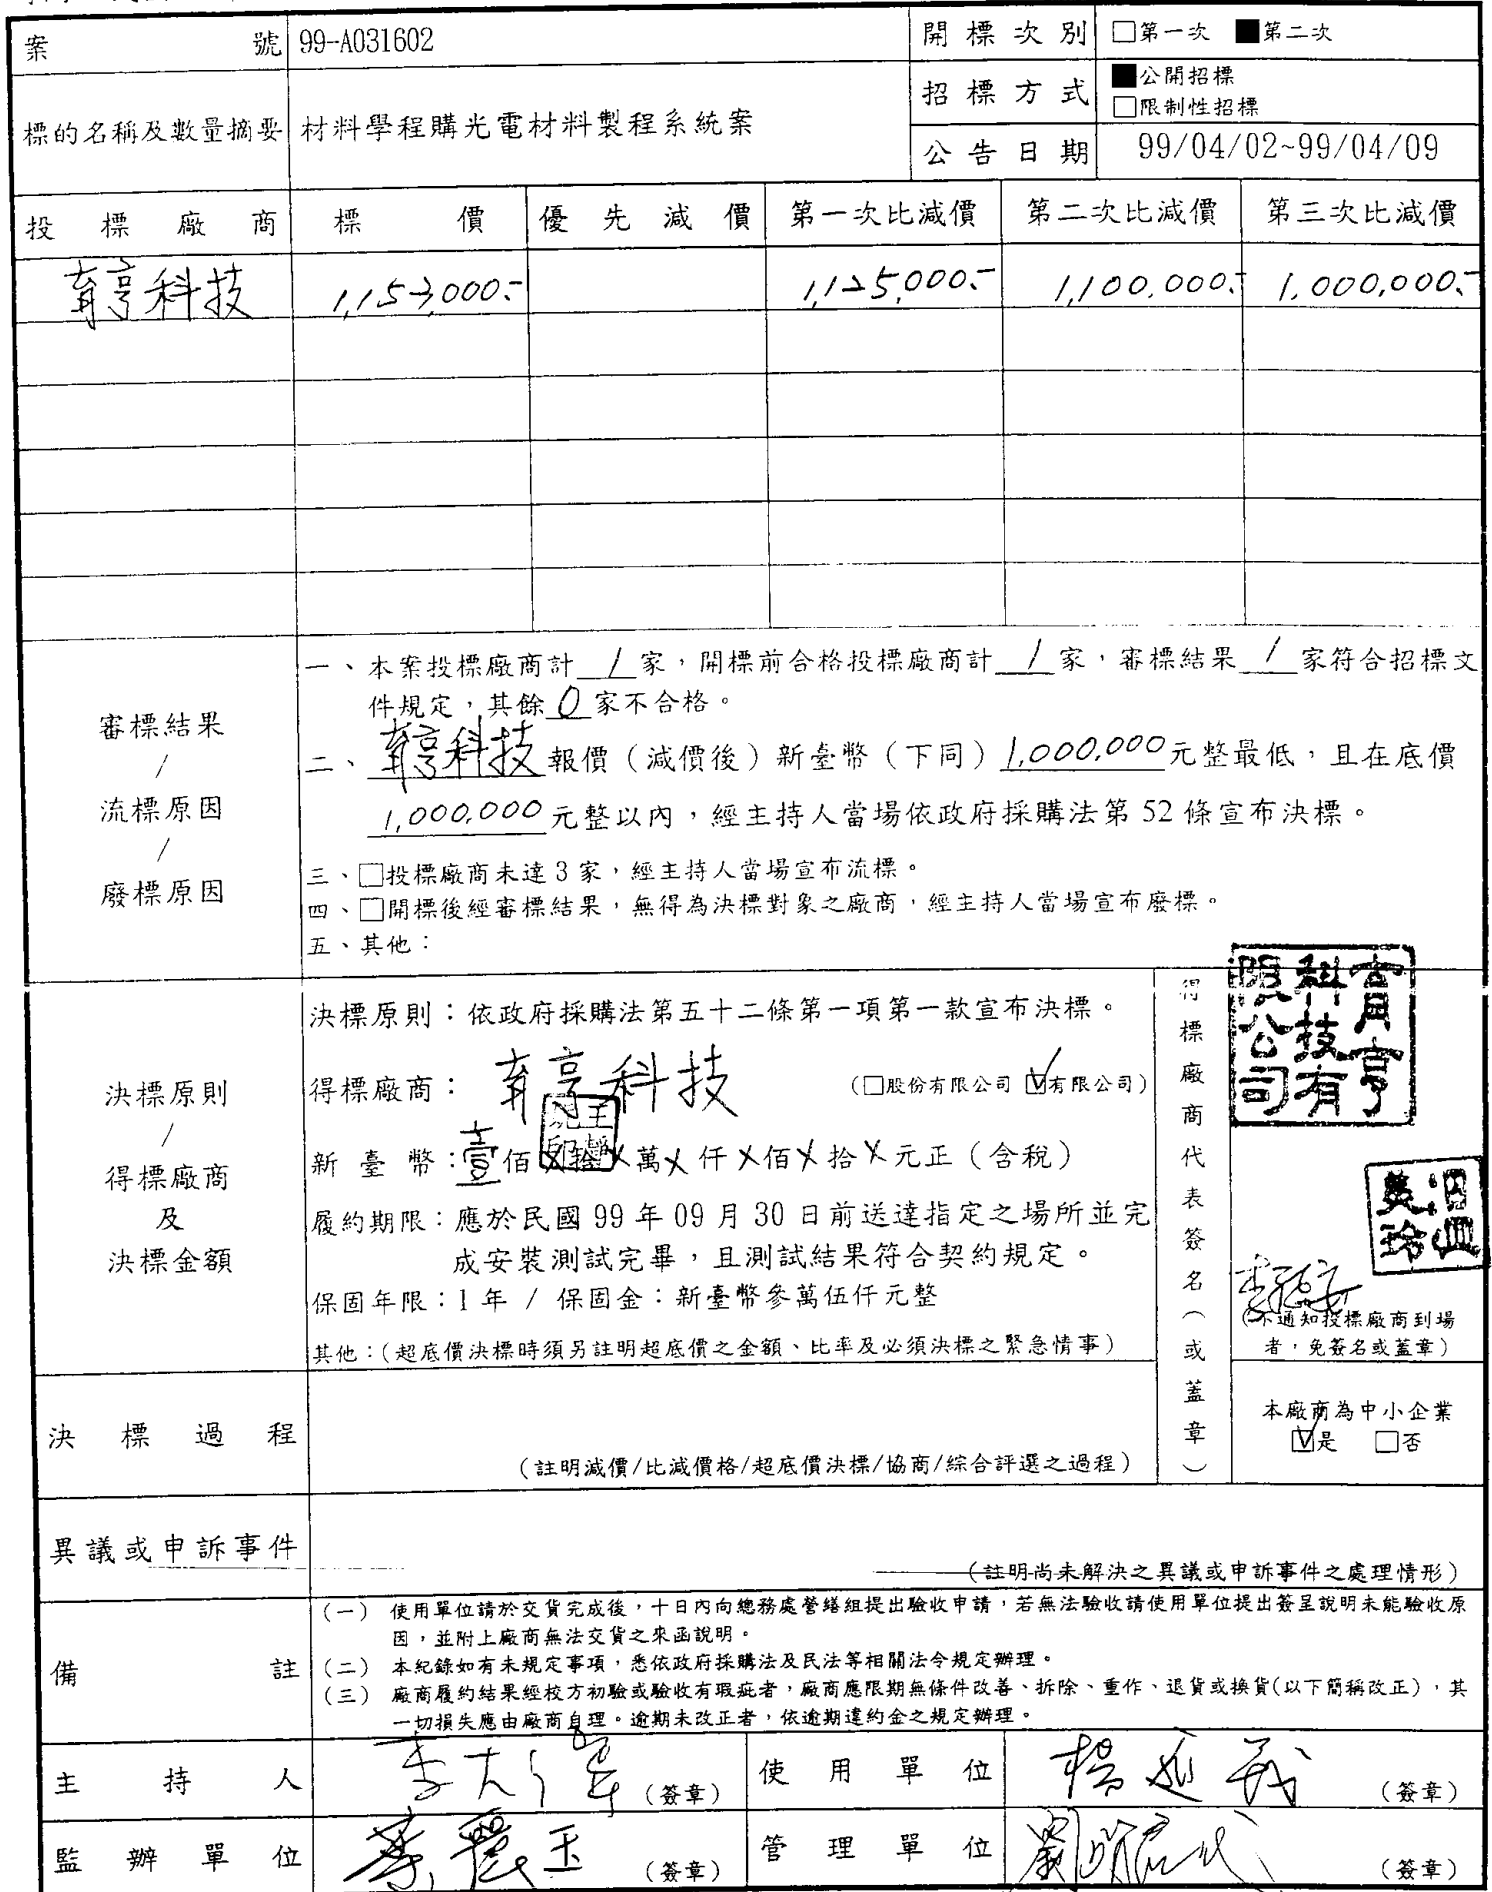 案號 99-A031602 開標次別 □第一次 ■第二次
招標方式 ■公開招標
□限制性招標
標的名稱及數量摘要 材料學程購光電材料製程系統案
公告日期 99/04/02~99/04/09
投標廠商 標價 優先減價 第一次比減價 第二次比減價 第三次比減價
育亨科技 1,153,000.- 1,125,000.- 1,100,000.- 1,000,000.-
審標結果
/
流標原因
/
廢標原因
一、本案投標廠商計 1 家,開標前合格投標廠商計 1 家,審標結果 1 家符合招標文
件規定,其餘 0 家不合格。
二、育亨科技報價(減價後)新臺幣(下同)1,000,000元整最低,且在底價
1,000,000元整以內,經主持人當場依政府採購法第 52 條宣布決標。
三、□投標廠商未達 3 家,經主持人當場宣布流標。
四、□開標後經審標結果,無得為決標對象之廠商,經主持人當場宣布廢標。
五、其他:
決標原則
/
得標廠商
及
決標金額
決標原則:依政府採購法第五十二條第一項第一款宣布決標。
得標廠商:育亨科技 (□股份有限公司 ☑有限公司)
新臺幣:壹佰X拾X萬X仟X佰X拾X元正(含稅)
履約期限:應於民國 99 年 09 月 30 日前送達指定之場所並完
成安裝測試完畢,且測試結果符合契約規定。
保固年限:1 年 / 保固金:新臺幣參萬伍仟元整
其他:(超底價決標時須另註明超底價之金額、比率及必須決標之緊急情事)
得標廠商代表簽名(或蓋章)
育亨
科技有
限公司
(不通知投標廠商到場
者,免簽名或蓋章)
本廠商為中小企業
☑是 □否
決標過程
(註明減價/比減價格/超底價決標/協商/綜合評選之過程)
異議或申訴事件
(註明尚未解決之異議或申訴事件之處理情形)
備註
(一) 使用單位請於交貨完成後,十日內向總務處營繕組提出驗收申請,若無法驗收請使用單位提出簽呈說明未能驗收原
因,並附上廠商無法交貨之來函說明。
(二) 本紀錄如有未規定事項,悉依政府採購法及民法等相關法令規定辦理。
(三) 廠商履約結果經校方初驗或驗收有瑕疵者,廠商應限期無條件改善、拆除、重作、退貨或換貨(以下簡稱改正),其
一切損失應由廠商自理。逾期未改正者,依逾期違約金之規定辦理。
主持人 (簽章) 使用單位 (簽章)
監辦單位 (簽章) 管理單位 (簽章)